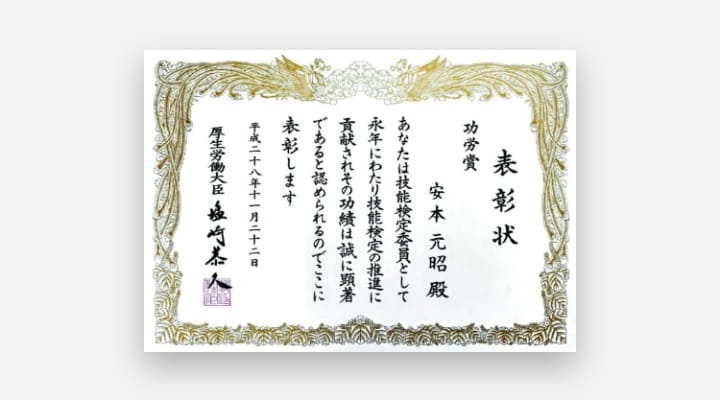 表彰状
功労賞
安本元昭殿
あなたは技能検定委員として
永年にわたり技能検定の推進に
貢献されその功績は誠に顕著
であると認められるのでここに
表彰します
平成二十八年十一月二十二日
厚生労働大臣 塩崎恭久